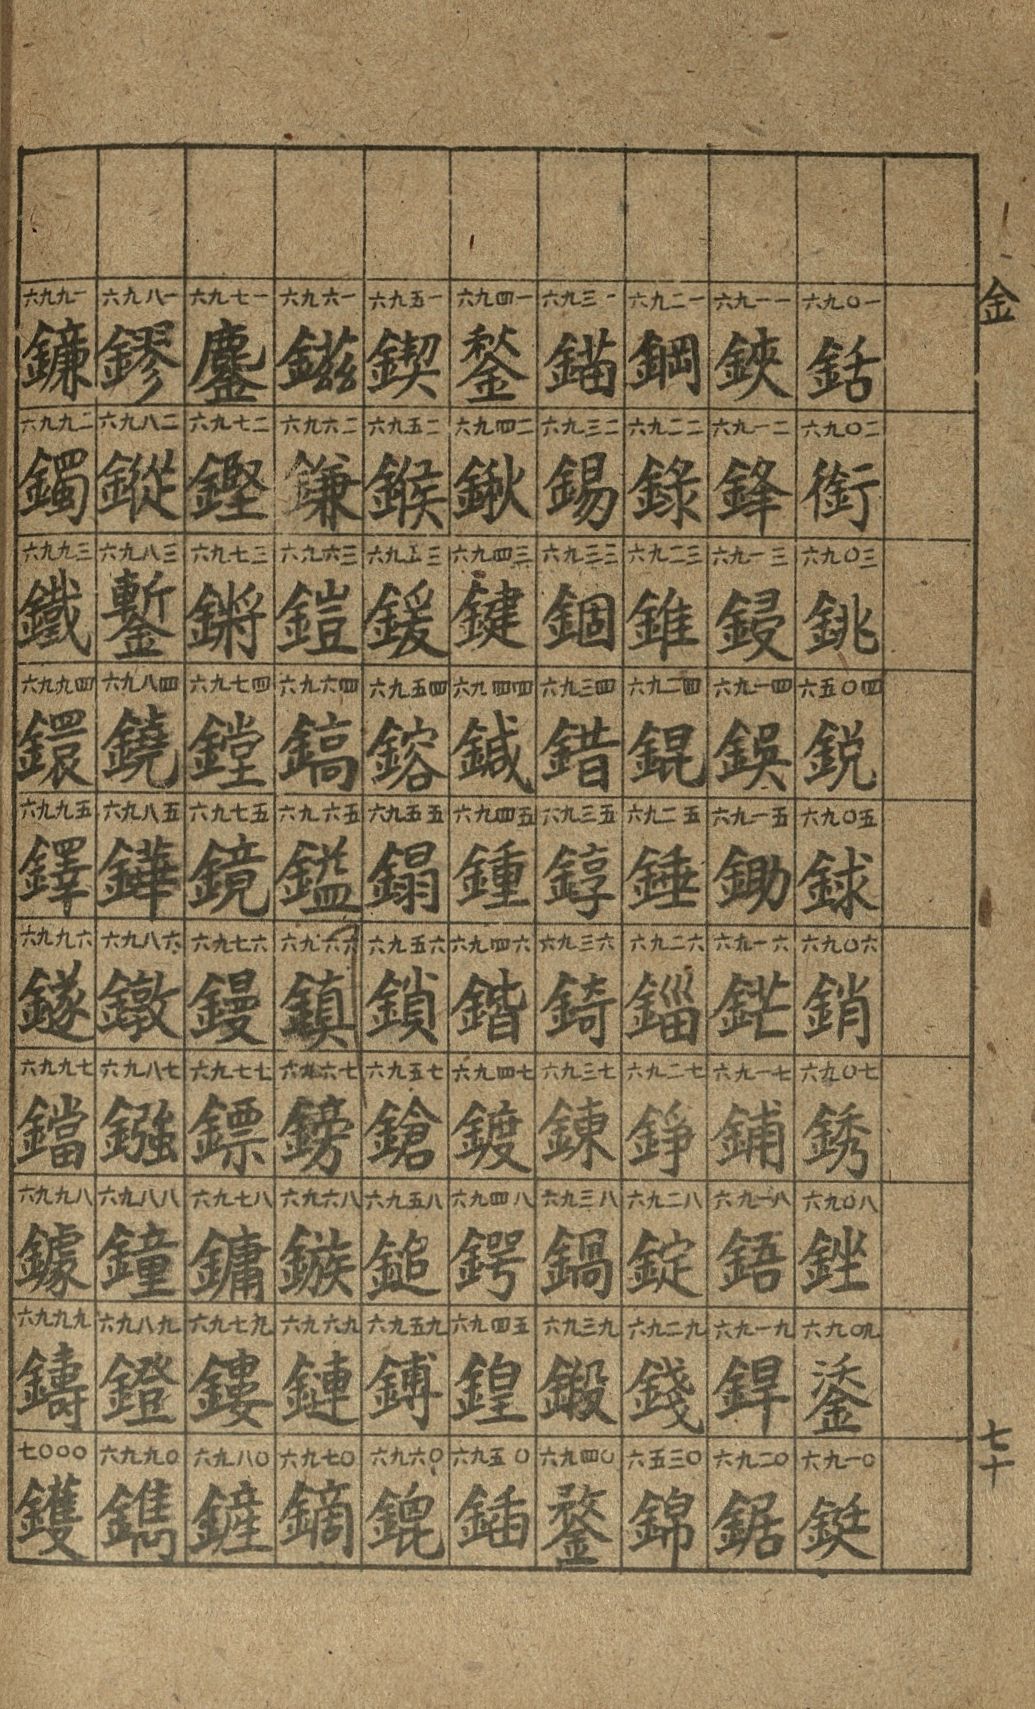 金
六九〇一
銛
六九〇二
銜
六九〇三
銚
六五〇四
鋭
六九〇五
銶
六九〇六
銷
六九〇七
銹
六九〇八
銼
六九〇九
鋈
六九一〇
鋌
六九一一
鋏
六九一二
鋒
六九一三
鋟
六九一四
鋘
六九一五
鋤
六九一六
鋩
六九一七
鋪
六九一八
鋙
六九一九
銲
六九二〇
鋸
六九二一
鋼
六九二二
錄
六九二三
錐
六九二四
錕
六九二五
錘
六九二六
錙
六九二七
錚
六九二八
錠
六九二九
錢
六五三〇
錦
六九三一
錨
六九三二
錫
六九三三
錮
六九三四
錯
六九三五
錞
六九三六
錡
六九三七
鍊
六九三八
鍋
六九三九
鍛
六九四〇
鍪
六九四一
鍫
六九四二
鍬
六九四三
鍵
六九四四
鍼
六九四五
鍾
六九四六
鍇
六九四七
鍍
六九四八
鍔
六九四五
鍠
六九五〇
鍤
六九五一
鍥
六九五二
鍭
六九五三
鍰
六九五四
鎔
六九五五
鎉
六九五六
鎖
六九五七
鎗
六九五八
鎚
六九五九
鎛
六九六〇
鎞
六九六一
鎡
六九六二
鎌
六九六三
鎧
六九六四
鎬
六九六五
鎰
六九六六
鎮
六九六七
鎊
六九六八
鏃
六九六九
鏈
六九七〇
鏑
六九七一
鏖
六九七二
鏗
六九七三
鏘
六九七四
鏜
六九七五
鏡
六九七六
鏝
六九七七
鏢
六九七八
鏞
六九七九
鏤
六九八〇
鏟
六九八一
鏐
六九八二
鏦
六九八三
鏨
六九八四
鐃
六九八五
鏵
六九八六
鐓
六九八七
鏹
六九八八
鐘
六九八九
鐙
六九九〇
鐫
六九九一
鐮
六九九二
鐲
六九九三
鐵
六九九四
鐶
六九九五
鐸
六九九六
鐩
六九九七
鐺
六九九八
鐻
六九九九
鑄
七〇〇〇
鑊
七十